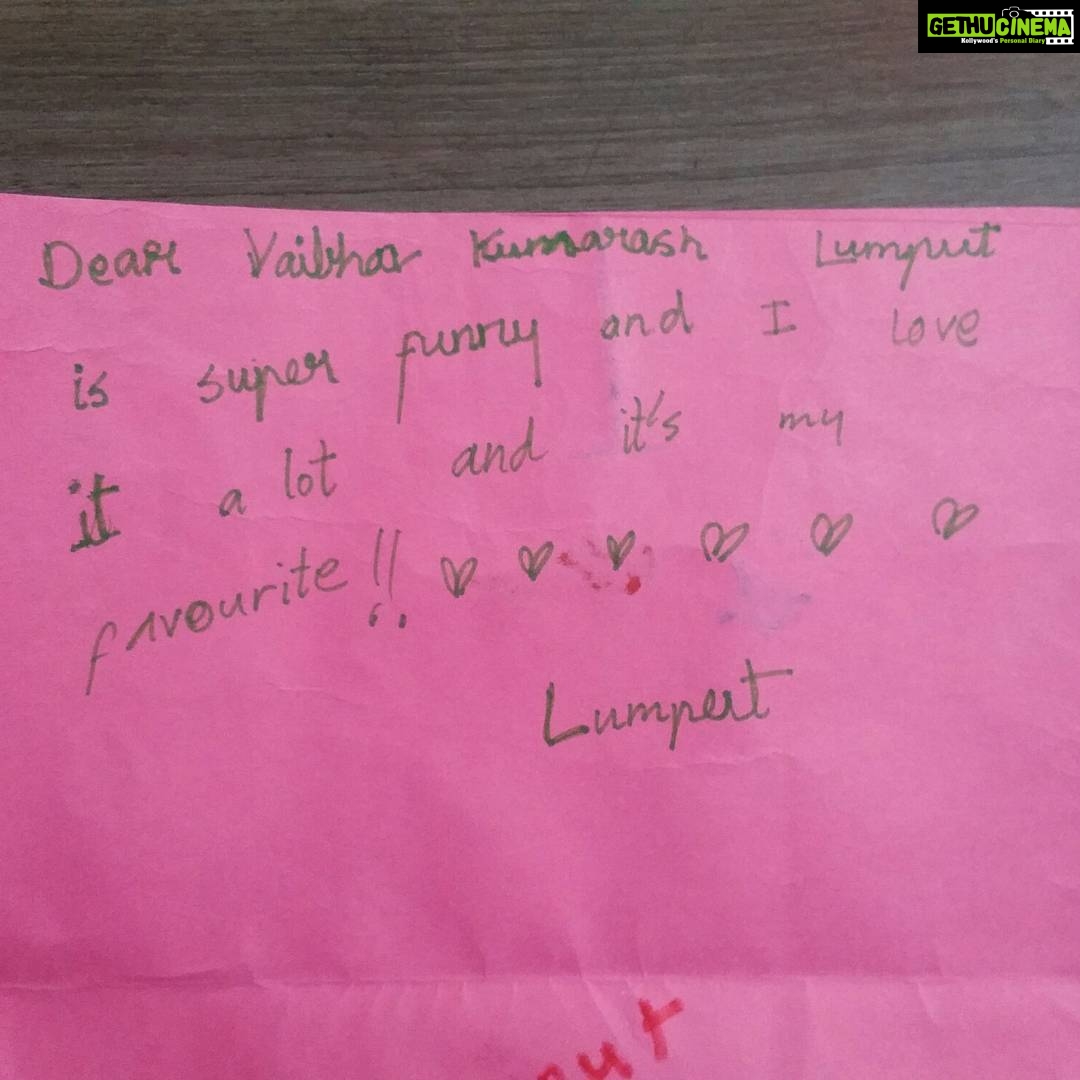 GETHU CINEMA
Kollywood's Personal Diary
Dear Vaibhav Kumarash Lumput
is super funny and I love
it a lot and it's my
favourite !!
Lumpert